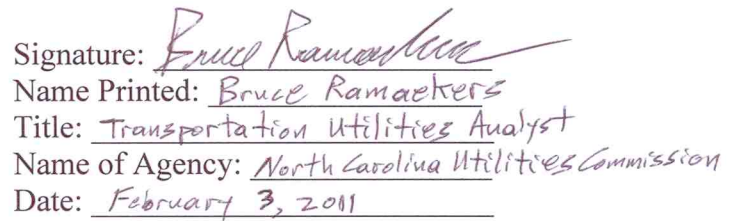 Signature: Bruce Ramaekers
Name Printed: Bruce Ramaekers
Title: Transportation Utilities Analyst
Name of Agency: North Carolina Utilities Commission
Date: February 3, 2011